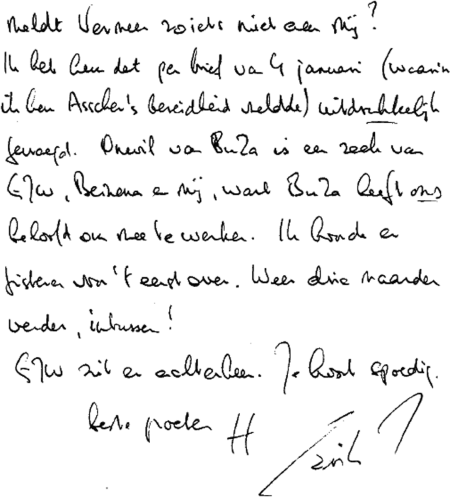 Meldt Vermeer zoiets niet aan mij?
Ik heb hem dat per brief van 4 januari (waarin
ik hem Asscher's bereidheid meldde) uitdrukkelijk
gevraagd. Onwil van BuZa is een zaak van
EZW, Beizema en mij, want BuZa heeft ons
beloofd om mee te werken. Ik hoorde er
gisteren voor 't eerst over. Weer drie maanden
verder, intussen!
EZW zit er achterheen. Je hoort spoedig.
beste groeten H